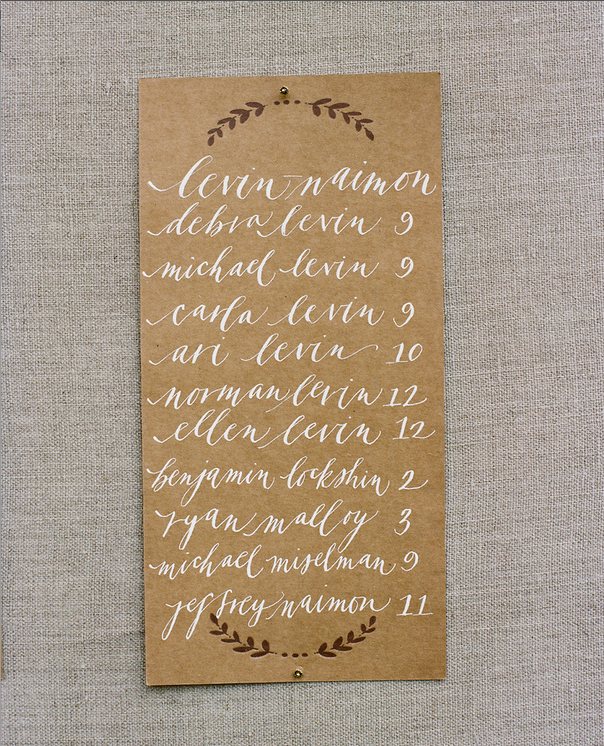 levin-naimon
debra levin 9
michael levin 9
carla levin 9
ari levin 10
norman levin 12
ellen levin 12
benjamin lockshin 2
ryan malloy 3
michael miselman 9
jeffrey naimon 11